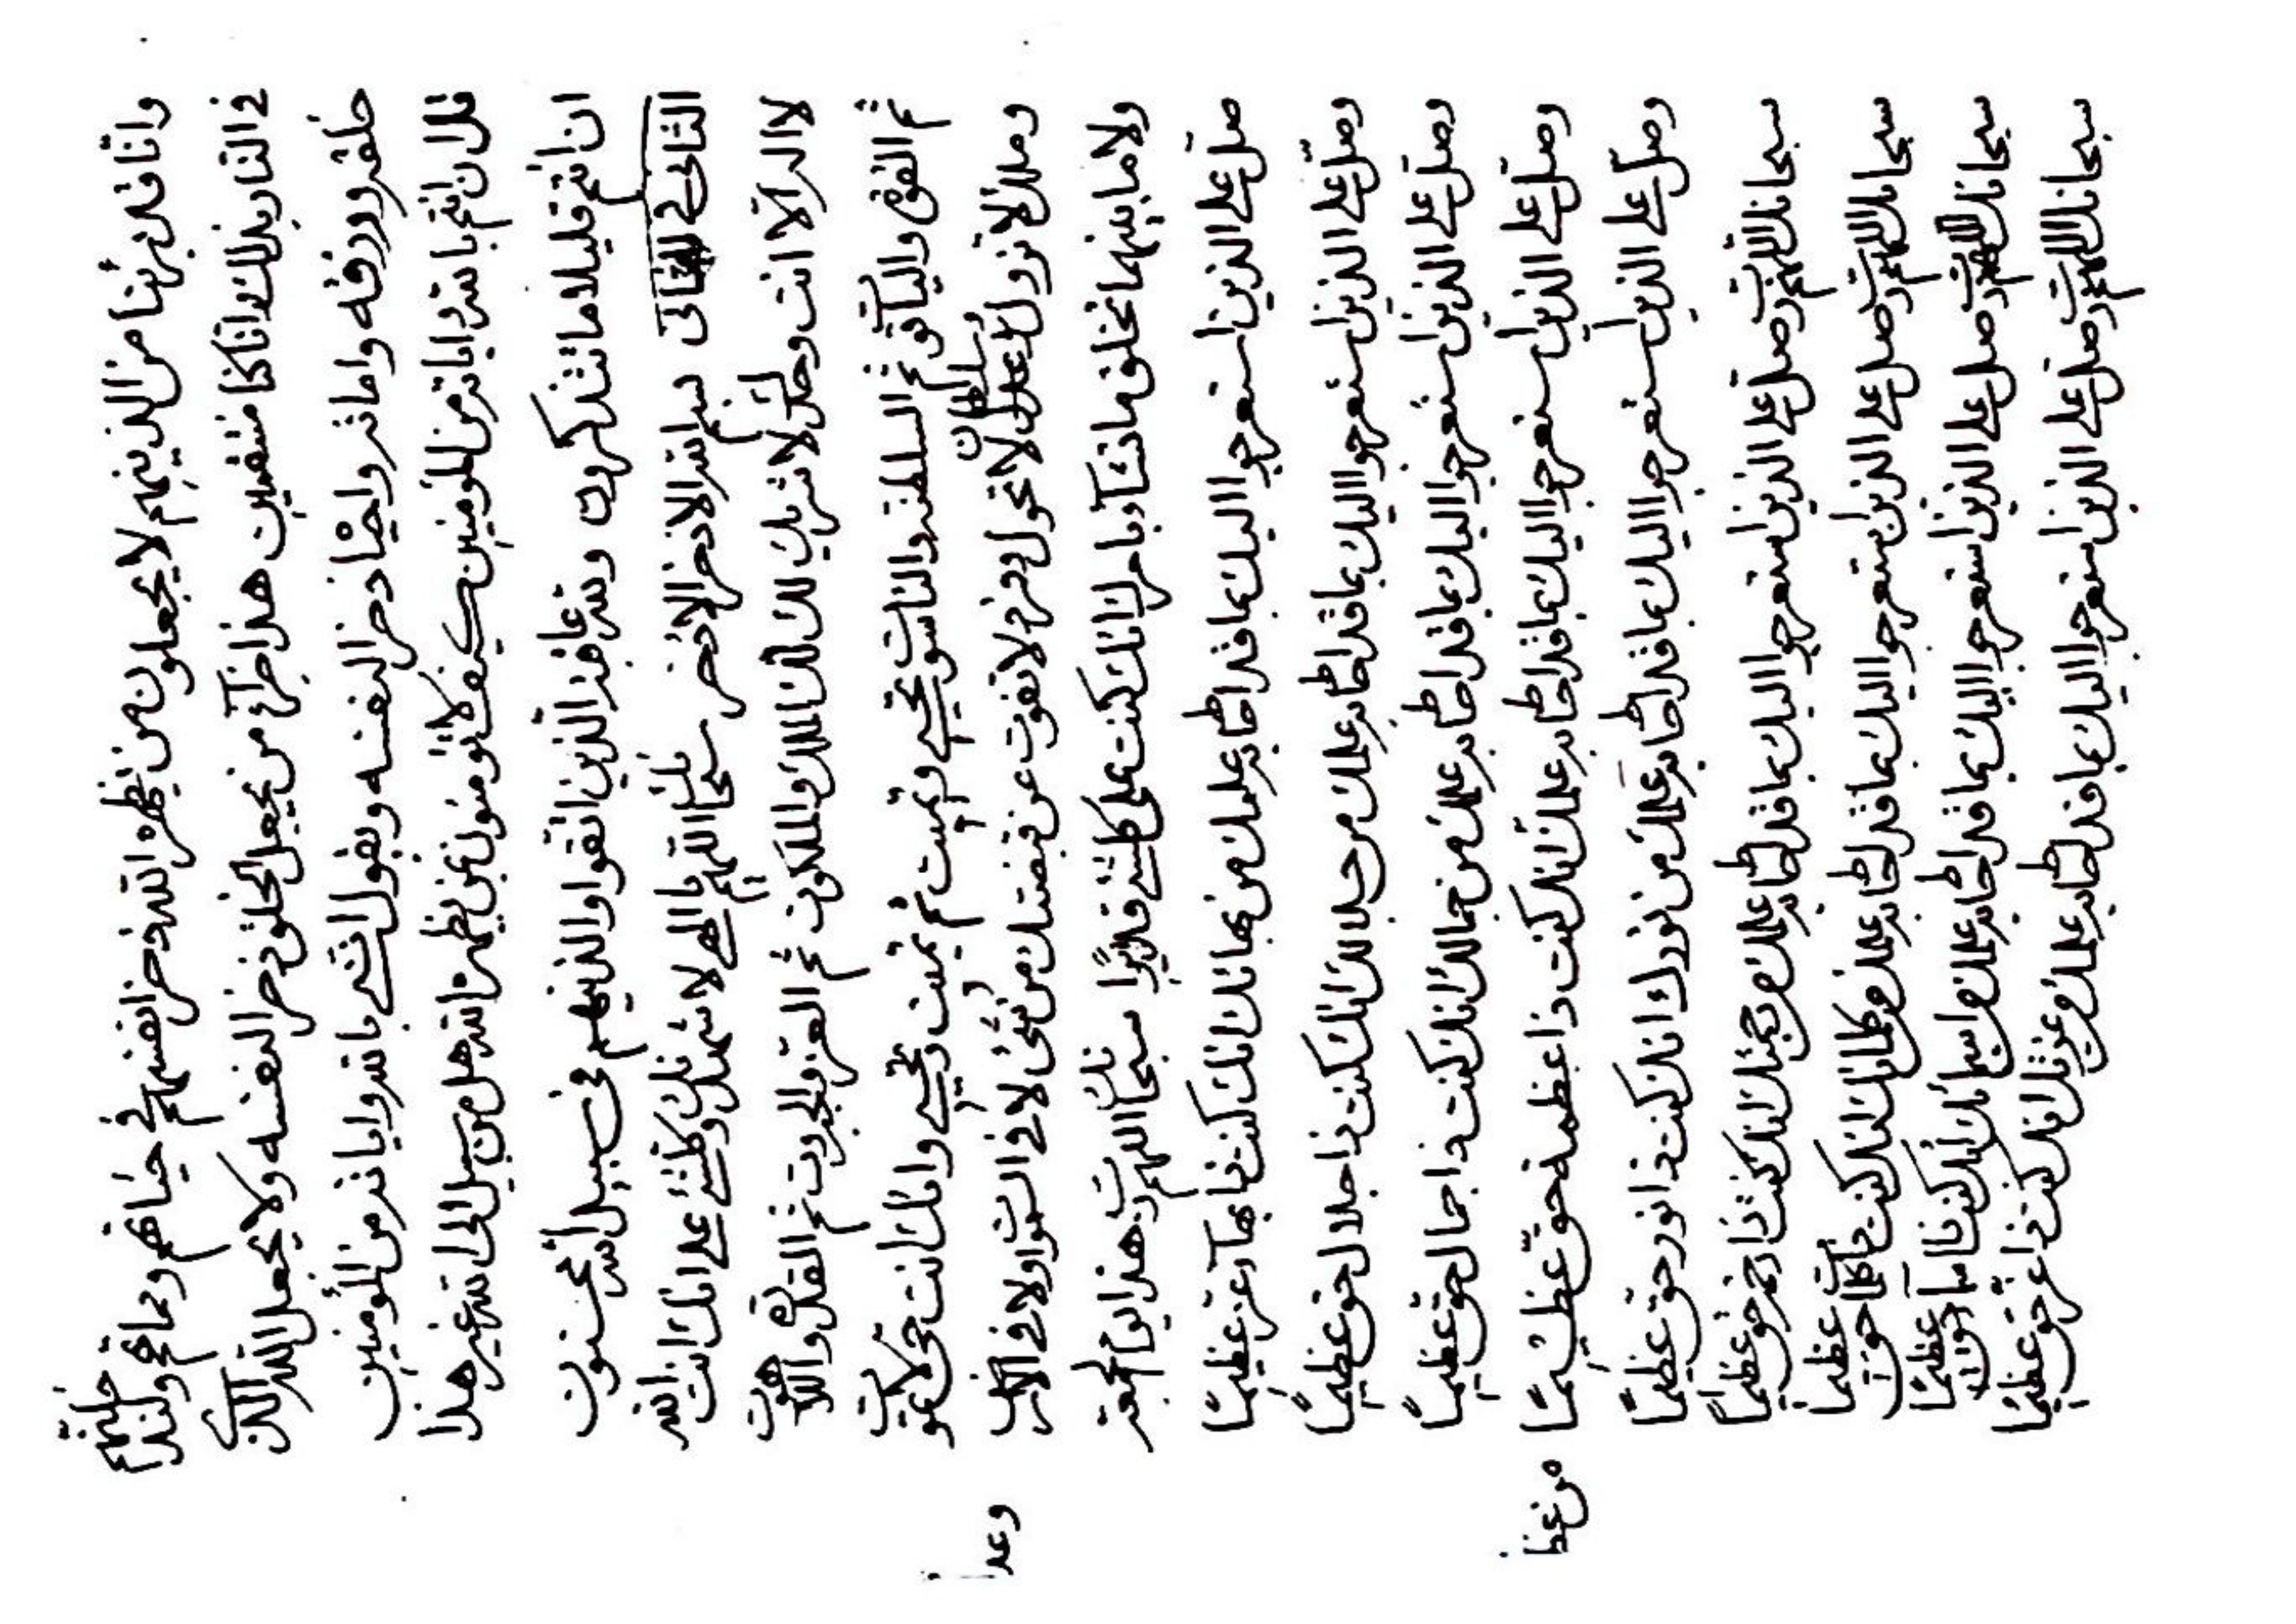 وانا قد برئنا من الذينهم لا يجعلون من يظهره الله ذخر انفسهم في حياتهم ومماتهم ولندخلنهم
في النار بذلك وانا كنا منتقمين هذا جزآء من يجعل الخلق ذخر النفسه ولا يجعل الله الذي
خلقه ورزقه واماته واحياه ذخر النفسه ويقول انني بالله واياته من المؤمنين
قل ان انتم بالله واياته من المؤمنين كيف لا تؤمنون بمن يظهره الله هل من سبيل الى الله غير هذا
ان انتم قليلا ما تتذكرون ولله عاقبة الذين اتقوا والذينهم في سبيل الله محسنون
الثاني في الثاني بسم الله الاذخر الاذخر سبحانك اللهم يا الهي لاشهدنك وكلشيء على انك انت الله
لا اله الا انت وحدك لا شريك لك لك الملك والملكوت ثم العز والجبروت ثم القدرة واللاهوت
ثم القوة والياقوت ثم السلطنة والناسوت تحيي وتميت ثم تميت وتحيي وانك انت حي لا تموت
وملك لا تزول وعدل لا تحول وسلطان وفرد لا تفوت عن قبضتك من شيء لا في السموات ولا في الارض
وعد
ولا ما بينهما تخلق ما تشآء بامرك انك كنت على كلشيء قديرا سبحانك اللهم رب هذا يوم الجمعة
صل على الذين استعرجوا اليك بما قد احاط به علمك من بهائك انك كنت ذا بهآء عز عظيما
وصل على الذين استعرجوا اليك بما قد احاط به علمك من جلالك انك كنت ذا جلال حق عظيما
وصل على الذين استعرجوا اليك بما قد احاط به علمك من جمالك انك كنت ذا جمال حق عظيما
وصل على الذين استعرجوا اليك بما قد احاط به علمك انك كنت ذا عظمة حق عظيما
من عظ
وصل على الذين استعرجوا اليك بما قد احاط به علمك من نورك انك كنت ذا نور حق عظيما
سبحانك اللهم رب صل على الذين استعرجوا اليك بما قد احاط به علمك من رحمتك انك كنت ذا رحمة حق عظيما
سبحانك اللهم رب صل على الذين استعرجوا اليك بما قد احاط به علمك من كلماتك انك كنت ذا كلمات حق عظيما
سبحانك اللهم رب صل على الذين استعرجوا اليك بما قد احاط به علمك من اسمائك انك كنت ذا اسمآء حق عظيما
سبحانك اللهم رب صل على الذين استعرجوا اليك بما قد احاط به علمك من عزتك انك كنت ذا عز حق عظيما